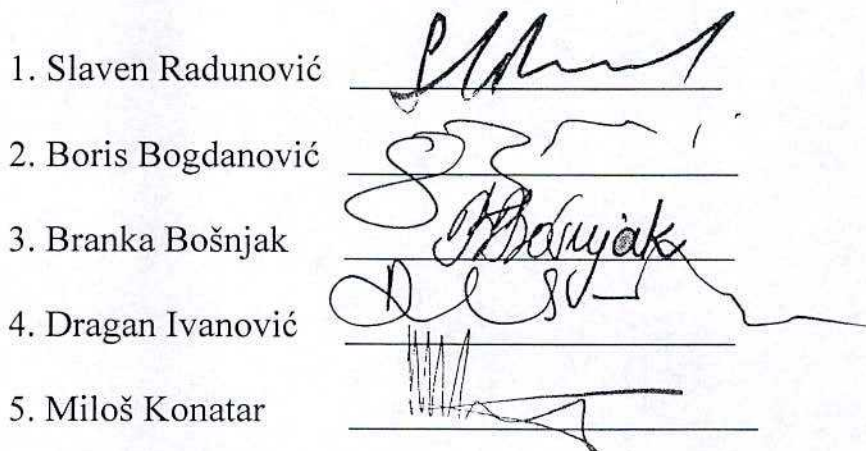 1. Slaven Radunović
2. Boris Bogdanović
3. Branka Bošnjak BBošnjak
4. Dragan Ivanović
5. Miloš Konatar